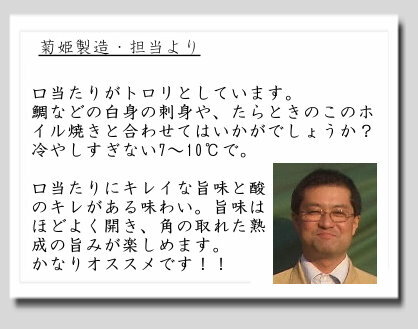 菊姫製造・担当より
口当たりがトロリとしています。
鯛などの白身の刺身や、たらときのこのホ
イル焼きと合わせてはいかがでしょうか？
冷やしすぎない7～10℃で。
口当たりにキレイな旨味と酸
のキレがある味わい。旨味は
ほどよく開き、角の取れた熟
成の旨みが楽しめます。
かなりオススメです！！